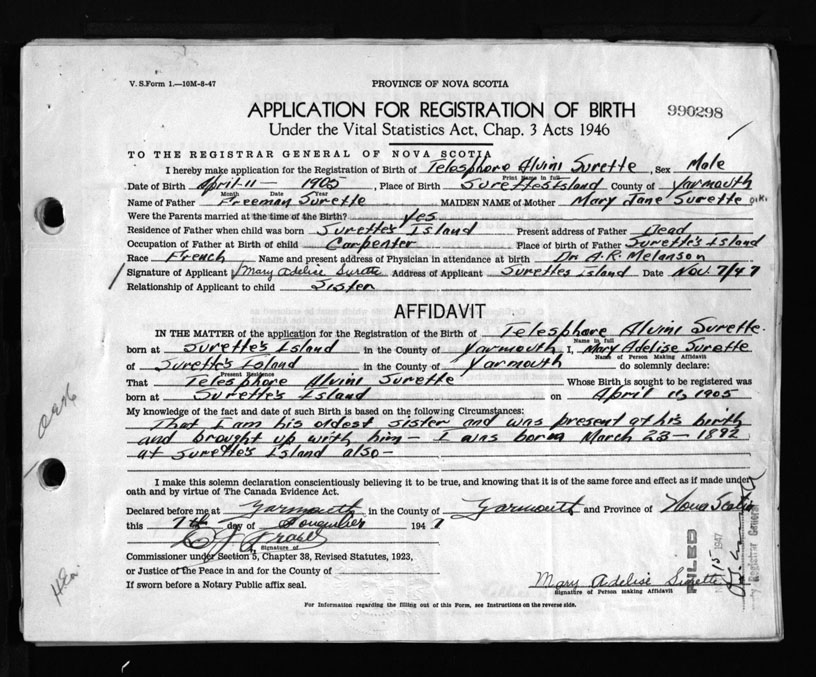 V. S. Form 1.—10M-8-47 PROVINCE OF NOVA SCOTIA
APPLICATION FOR REGISTRATION OF BIRTH 990298
Under the Vital Statistics Act, Chap. 3 Acts 1946
TO THE REGISTRAR GENERAL OF NOVA SCOTIA
I hereby make application for the Registration of Birth of Telesphore Alvini Surette, Sex Male
Print Name in full
Date of Birth April-11- 1905, Place of Birth Surettes Island County of Yarmouth
Month Date Year
Name of Father Freeman Surette MAIDEN NAME of Mother Mary Jane Surette O.K.
Were the Parents married at the time of the Birth? yes
Residence of Father when child was born Surette's Island Present address of Father Dead
Occupation of Father at Birth of child Carpenter Place of birth of Father Surette's Island
Race French Name and present address of Physician in attendance at birth Dr A.R. Melanson
Signature of Applicant Mary Adelise Surette Address of Applicant Surettes Island Date Nov. 7/47
Relationship of Applicant to child Sister
AFFIDAVIT
IN THE MATTER of the application for the Registration of the Birth of Telesphore Alvini Surette.
Name in full
born at Surette's Island in the County of Yarmouth I, Mary Adelise Surette
Name of Person Making Affidavit
of Surette's Island in the County of Yarmouth do solemnly declare:
Present Residence
That Telesphore Alvini Surette Whose Birth is sought to be registered was
born at Surette's Island on April 11, 1905
My knowledge of the fact and date of such Birth is based on the following Circumstances:
That I am his oldest sister and was present at his birth
and brought up with him - I was born March 23 - 1892
at Surette's Island also -
I make this solemn declaration conscientiously believing it to be true, and knowing that it is of the same force and effect as if made under
oath and by virtue of The Canada Evidence Act.
Declared before me at Yarmouth in the County of Yarmouth and Province of Nova Scotia
this 7th day of November 1947
Signature of
Commissioner under Section 5, Chapter 38, Revised Statutes, 1923,
or Justice of the Peace in and for the County of
If sworn before a Notary Public affix seal.
Mary Adelise Surette
Signature of Person making Affidavit
FILED
15 1947
Registrar General
For Information regarding the filling out of this Form, see Instructions on the reverse side.